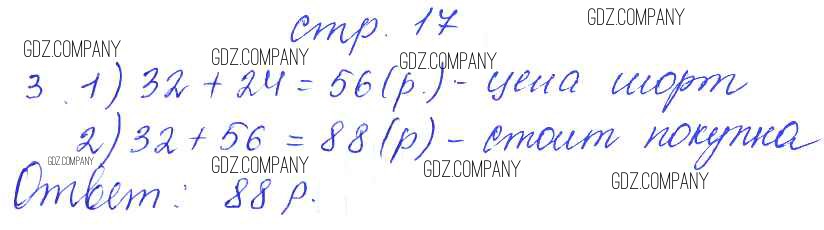 стр. 17
GDZ.COMPANY
GDZ.COMPANY GDZ.COMPANY GDZ.COMPANY
3 1) 32 + 24 = 56 (р.) - цена шорт
2) 32 + 56 = 88 (р) - стоит покупка
GDZ.COMPANY GDZ.COMPANY GDZ.COMPANY GDZ.COMPANY
Ответ: 88 р.